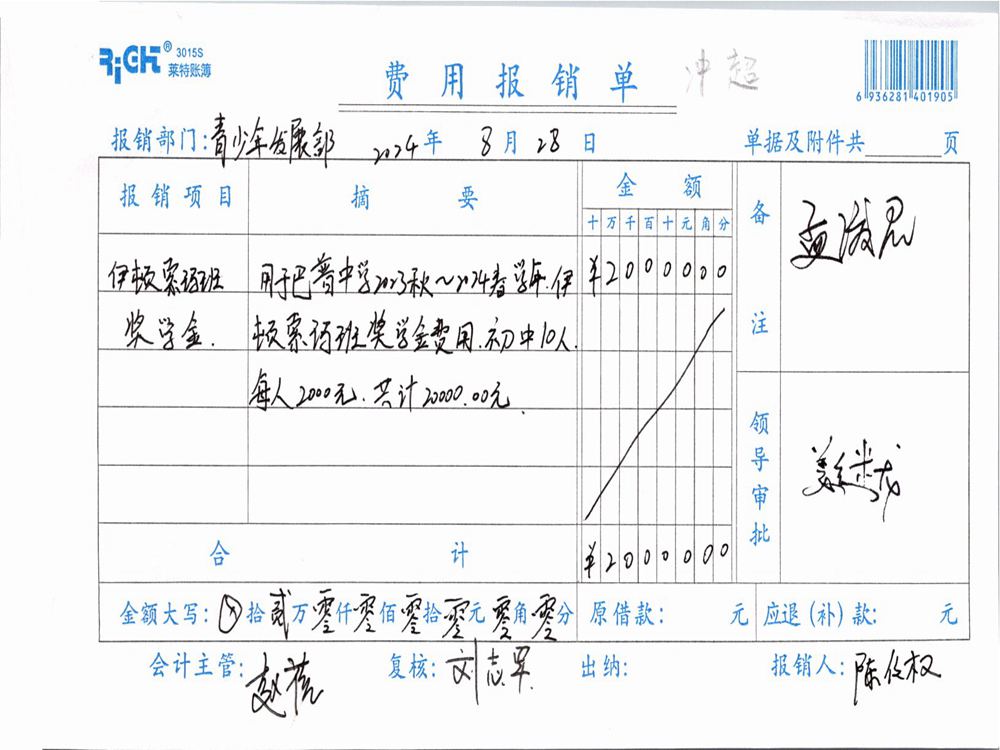 RiGHT® 3015S
莱特账簿
费用报销单 冲超
6 936281 401905
报销部门：青少年发展部 2024年 8月 28日 单据及附件共 页
报销项目 摘要 金额 备注
十万千百十元角分
伊顿索语班 用于巴普中学2023秋～2024春学年.伊 ¥2000000
奖学金. 顿索语班奖学金费用.初中10人.
每人2000元.共计20000.00元.
领导审批
合计 ¥2000000
金额大写：⊗拾贰万零仟零佰零拾零元零角零分 原借款： 元 应退(补)款： 元
会计主管： 复核：刘志军. 出纳： 报销人：陈俊权